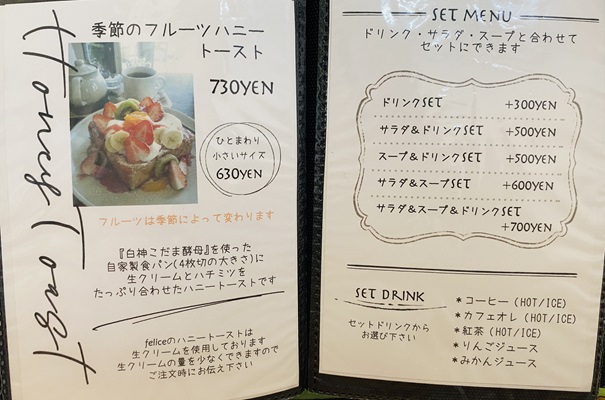 Honey Toast
季節のフルーツハニー
トースト
730YEN
ひとまわり
小さいサイズ
630YEN
フルーツは季節によって変わります
『白神こだま酵母』を使った
自家製食パン(4枚切の大きさ)に
生クリームとハチミツを
たっぷり合わせたハニートーストです
feliceのハニートーストは
生クリームを使用しております
生クリームの量を少なくできますので
ご注文時にお伝え下さい
SET MENU
ドリンク・サラダ・スープと合わせて
セットにできます
ドリンクSET +300YEN
サラダ&ドリンクSET +500YEN
スープ&ドリンクSET +500YEN
サラダ&スープSET +600YEN
サラダ&スープ&ドリンクSET
+700YEN
SET DRINK
セットドリンクから
お選び下さい
*コーヒー(HOT/ICE)
*カフェオレ(HOT/ICE)
*紅茶(HOT/ICE)
*りんごジュース
*みかんジュース